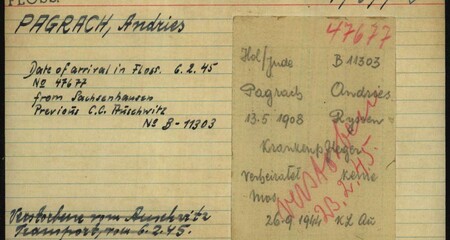 FLOSS.
PAGRACH, Andries
Date of arrival in Floss. 6.2.45
No 47677
from Sachsenhausen
Previous C.C. Auschwitz
No B-11303
Verstorbene vom Auschwitz
Transport, vom 6.2.45.
47677
Hol/Jude B 11303
Pagrach Andries
13.5 1908 Ryssen
Krankenpfleger
Verheiratet keine
Mos.
26.9 1944 KL Au
verstorben
23.2.45